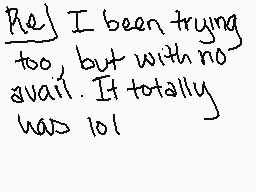 Re) I been trying
too, but with no
avail. It totally
has lol